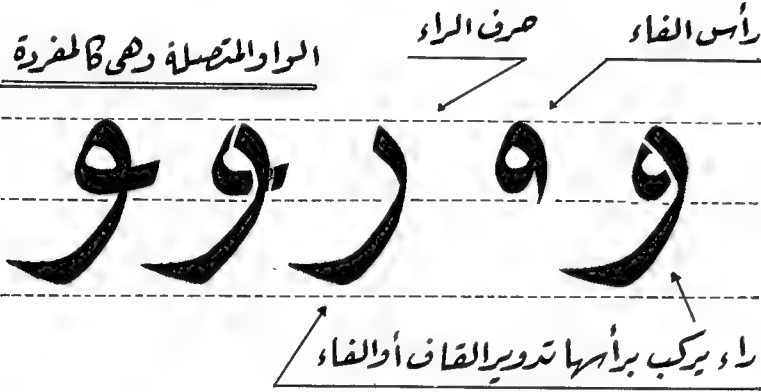 رأس الفاء
حرف الراء
الواو المتصلة وهى كالمفردة
و ه ر و و
راء يركب برأسها تدوير القاف أو الفاء